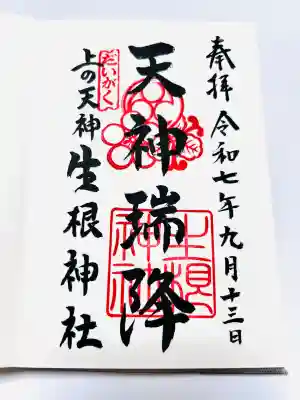 奉拝 令和七年九月十三日
天神瑞降
だいがく
上の天神 生根神社
生根神社